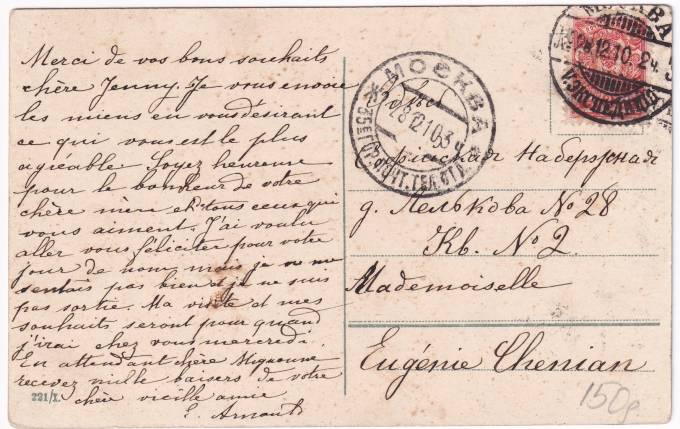 Merci de vos bons souhaits
chère Jenny. Je vous envoie
les miens en vous désirant
ce qui vous est le plus
agréable. Soyez heureuse
pour le bonheur de votre
chère mère et tous ceux qui
vous aiment. J'ai voulu
aller vous féliciter pour votre
jour de nom mais je ne me
sentais pas bien et je ne suis
pas sortie. Ma visite et mes
souhaits seront pour quand
j'irai chez vous mercredi.
En attendant chère Mignonne
recevez mille baisers de votre
chère vieille amie
E. Arnault
221/I.
МОСКВА
28.12.10
МОСКВА
28.12.10.3
Набережная
д. Лелькова № 28
Кв. № 2.
Mademoiselle
Eugénie Chenian
150